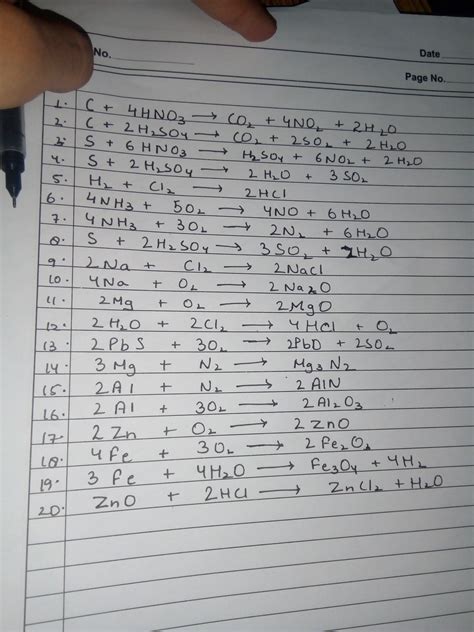 No.
Date
Page No.
1. C + 4HNO₃ → CO₂ + 4NO₂ + 2H₂O
2. C + 2H₂SO₄ → CO₂ + 2SO₂ + 2H₂O
3. S + 6HNO₃ → H₂SO₄ + 6NO₂ + 2H₂O
4. S + 2H₂SO₄ → 2H₂O + 3SO₂
5. H₂ + Cl₂ → 2HCl
6. 4NH₃ + 5O₂ → 4NO + 6H₂O
7. 4NH₃ + 3O₂ → 2N₂ + 6H₂O
8. S + 2H₂SO₄ → 3SO₂ + 2H₂O
9. 2Na + Cl₂ → 2NaCl
10. 4Na + O₂ → 2Na₂O
11. 2Mg + O₂ → 2MgO
12. 2H₂O + 2Cl₂ → 4HCl + O₂
13. 2PbS + 3O₂ → 2PbO + 2SO₂
14. 3Mg + N₂ → Mg₃N₂
15. 2Al + N₂ → 2AlN
16. 2Al + 3O₂ → 2Al₂O₃
17. 2Zn + O₂ → 2ZnO
18. 4Fe + 3O₂ → 2Fe₂O₃
19. 3Fe + 4H₂O → Fe₃O₄ + 4H₂
20. ZnO + 2HCl → ZnCl₂ + H₂O